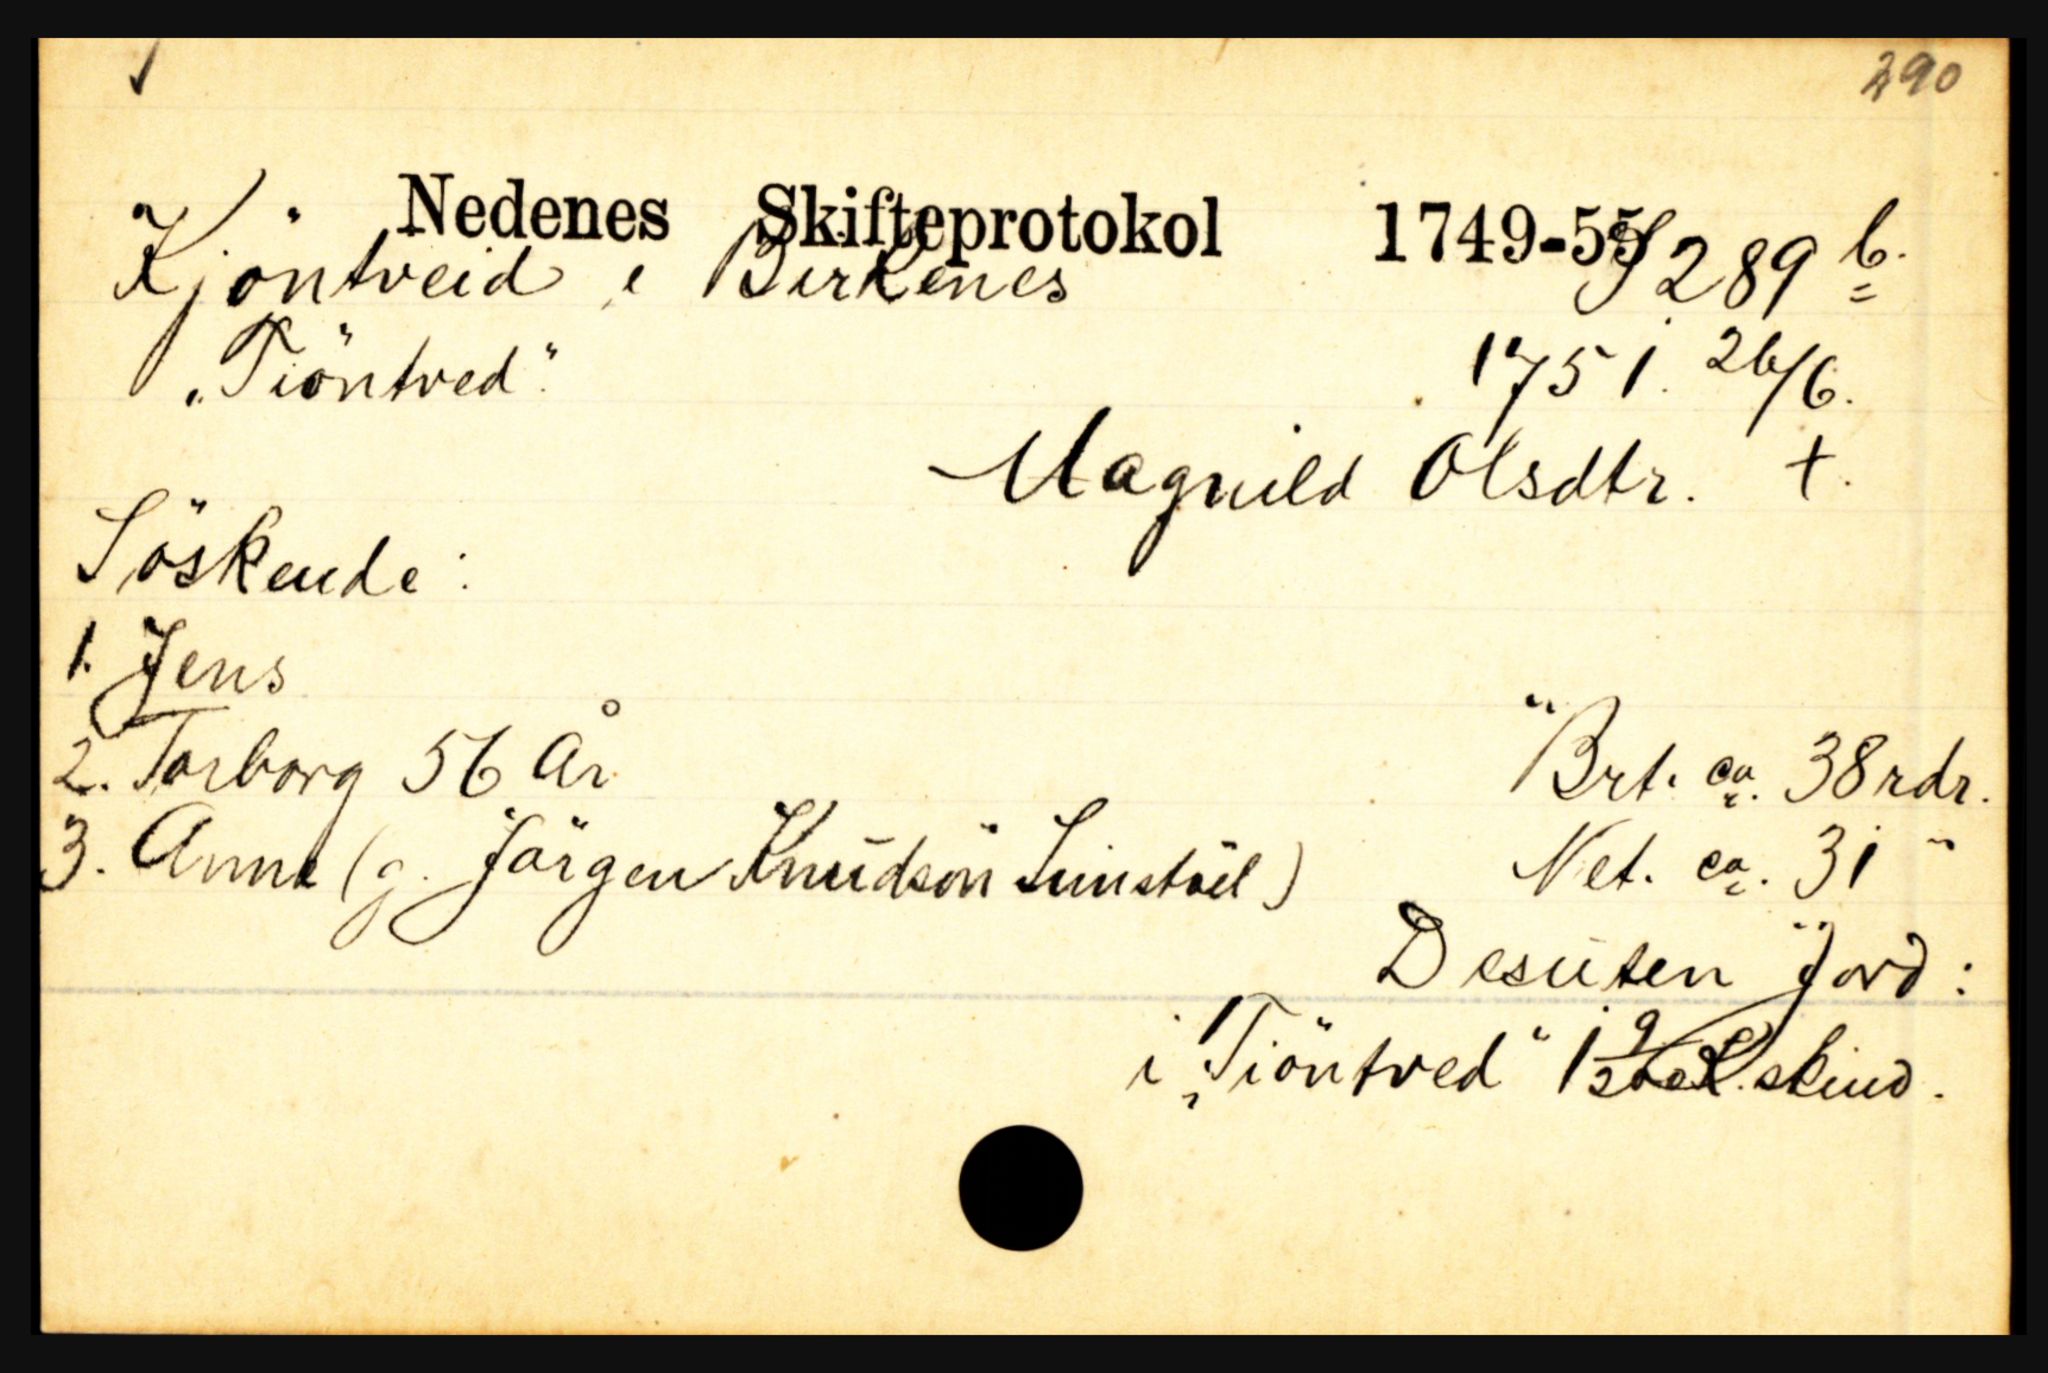 290
Nedenes Skifteprotokol 1749-55
Kjöntveid i Birkenes S 289 b.
"Tiöntved" 1751. 26/6.
Magnild Olsdtr. +.
Söskende:
1. Jens
2. Torborg 56 År
3. Anne (g. Jörgen Knudsön)
Brt. ca. 38 rdr.
Net. ca. 31 "
Desuten Jord:
i "Tiöntved" 1 skind.